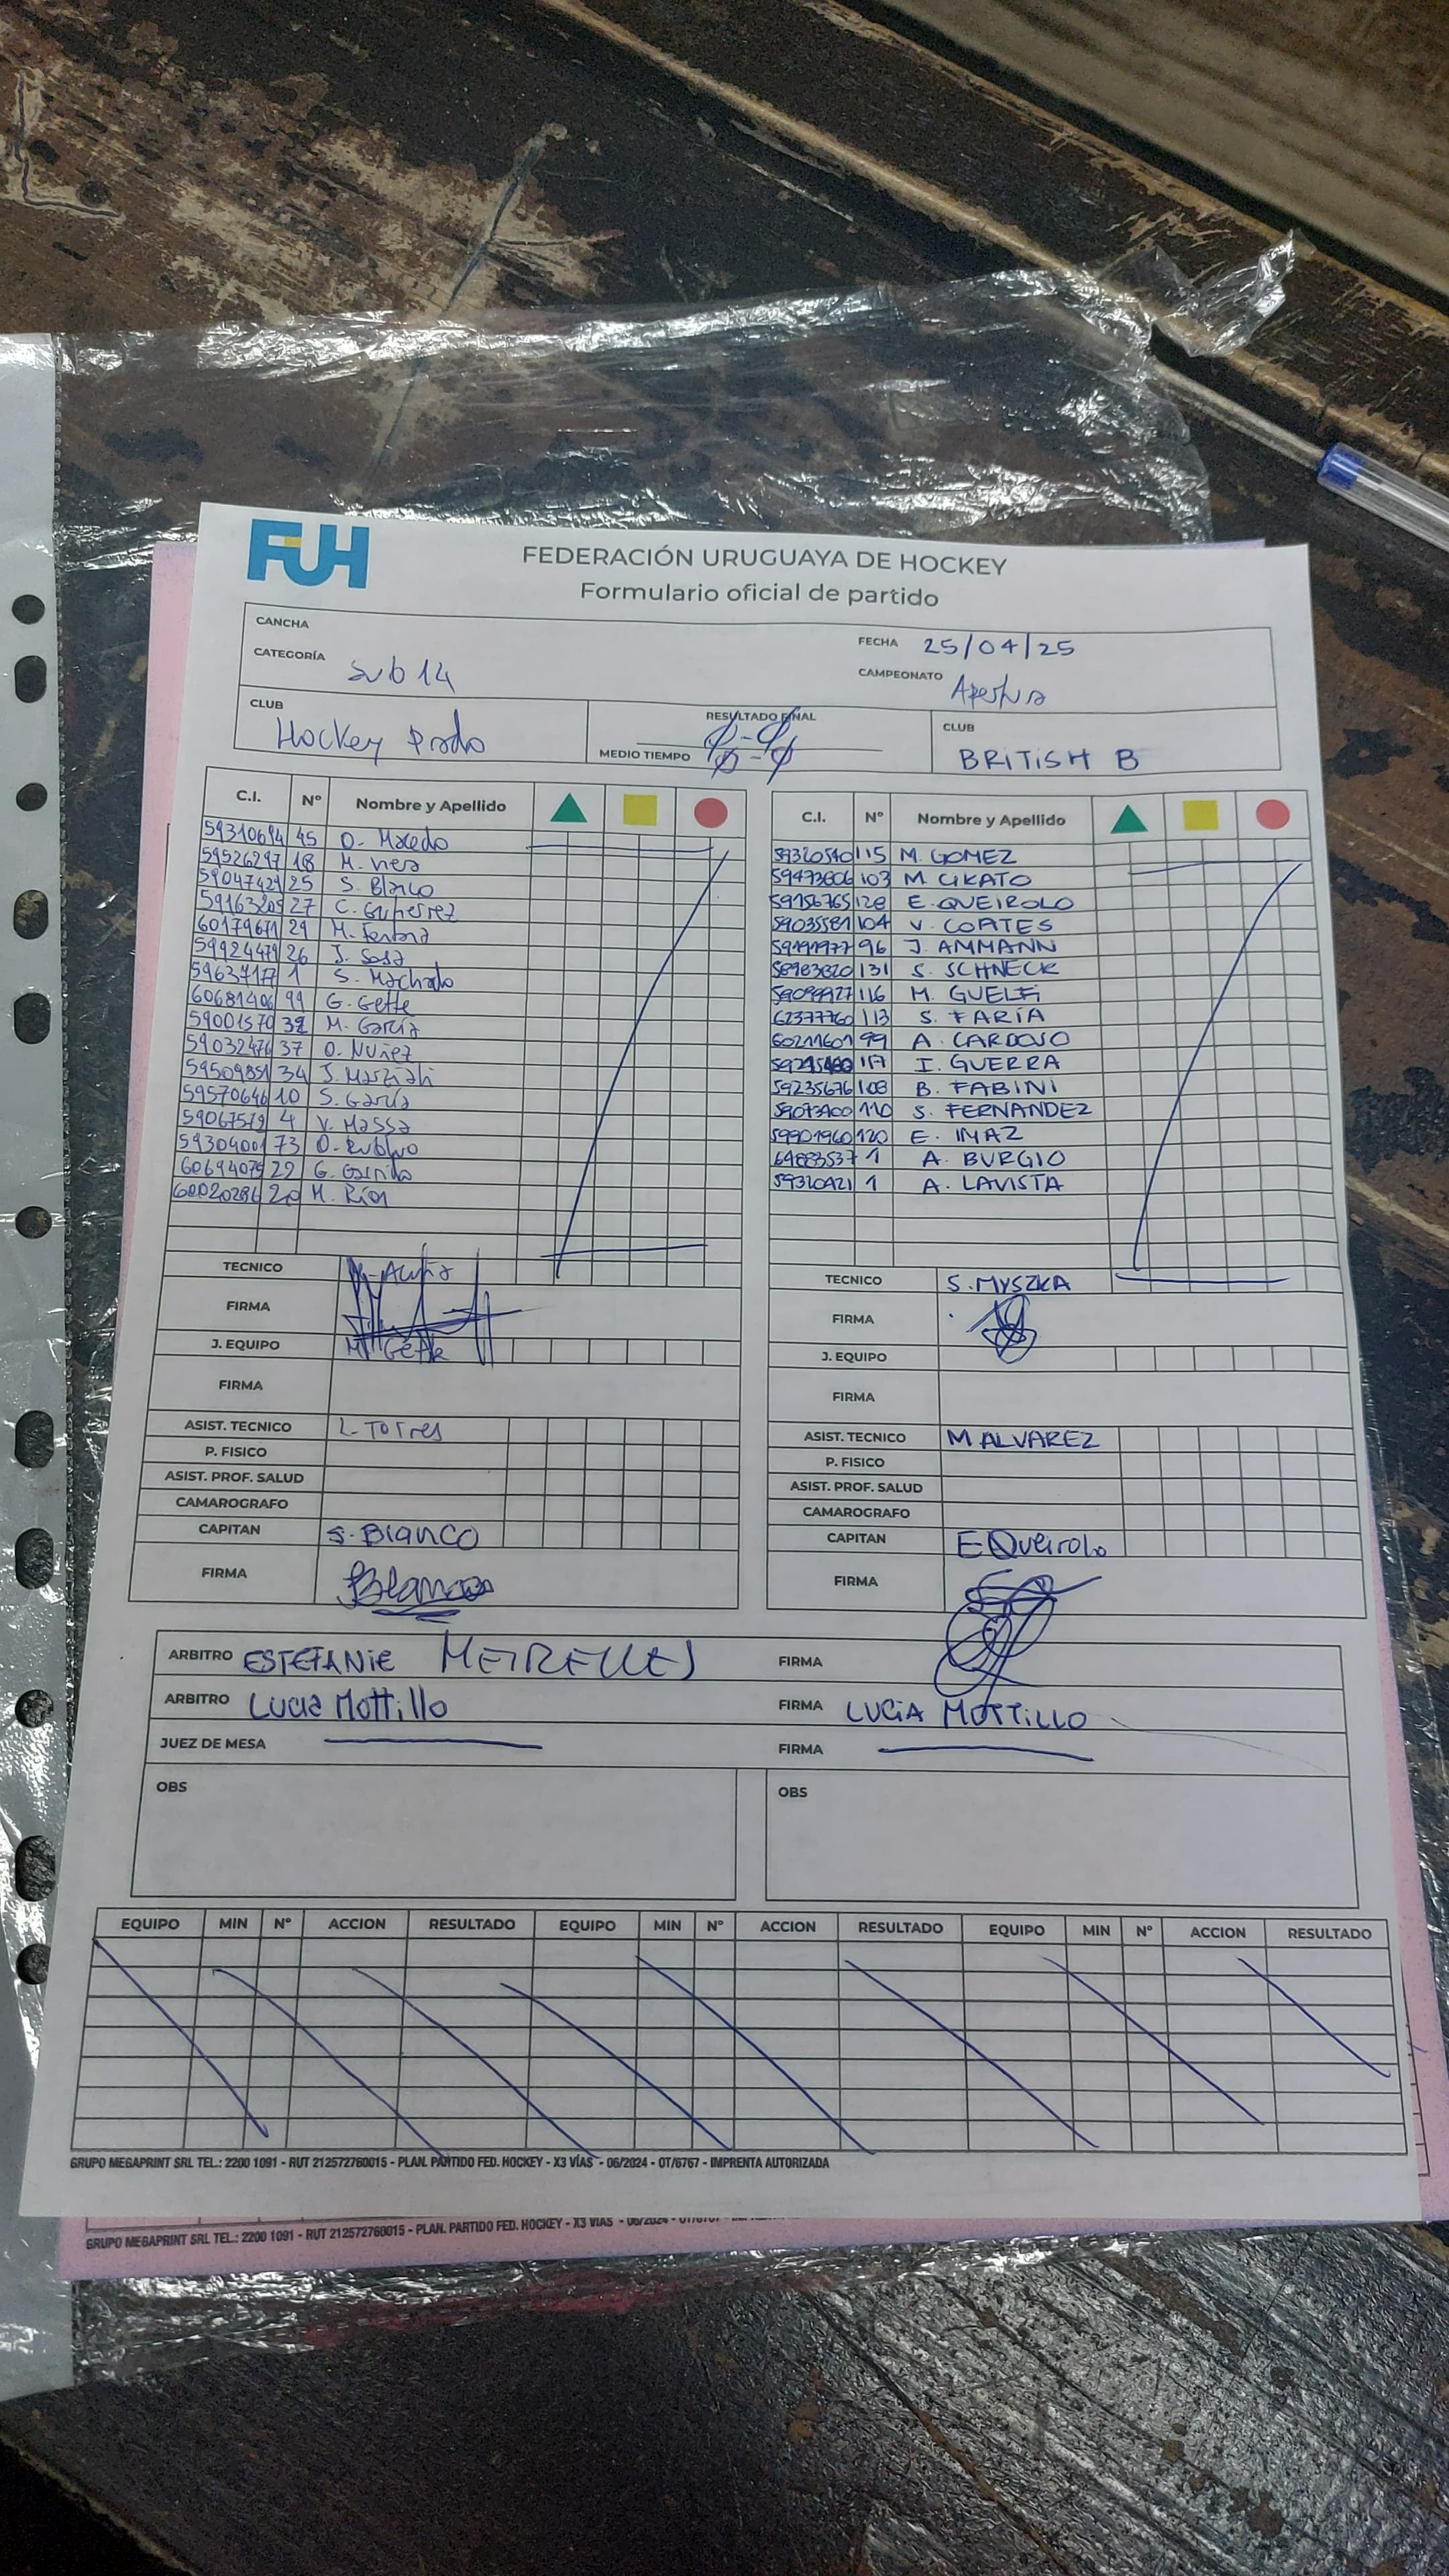 FUH
FEDERACIÓN URUGUAYA DE HOCKEY
Formulario oficial de partido
CANCHA
FECHA 25/04/25
CATEGORÍA Sub 14
CAMPEONATO Apertura
CLUB Hockey Prado
RESULTADO FINAL 0-0
MEDIO TIEMPO 0-0
CLUB BRITISH B
C.I. Nº Nombre y Apellido
45 O. Macedo
18 M. Viera
25 S. Blanco
27 C. Gutierrez
29 M.
26 J. Sosa
59637177 1 S. Machado
60681406 99 G. Gette
59001570 32 M. García
59032476 37 O. Nuñez
34 J.
59570646 10 S. García
4 V. Massa
59304001 73 O.
22 G. Garrido
20 M. Ríos
TECNICO
FIRMA
J. EQUIPO M. Gette
FIRMA
ASIST. TECNICO L. Torres
P. FISICO
ASIST. PROF. SALUD
CAMAROGRAFO
CAPITAN S. Blanco
FIRMA Blanco
C.I. Nº Nombre y Apellido
59320540 115 M. GOMEZ
59473806 103 M.
59156765 128 E. QUEIROLO
59035581 104 V. CORTES
59191977 96 J. AMMANN
58983820 131 S. SCHNECK
59099927 116 M. GUELFI
62377760 113 S. FARÍA
60211601 99 A. CARDOSO
117 I. GUERRA
59235676 108 B. FABINI
59073400 110 S. FERNANDEZ
59901960 120 E. IMAZ
1 A. BURGIO
1 A. LAVISTA
TECNICO S. MYSZKA
FIRMA
J. EQUIPO
FIRMA
ASIST. TECNICO M ALVAREZ
P. FISICO
ASIST. PROF. SALUD
CAMAROGRAFO
CAPITAN E Queirolo
FIRMA
ARBITRO ESTEFANIE MEIRELLES FIRMA
ARBITRO Lucia Mottillo FIRMA LUCIA MOTTILLO
JUEZ DE MESA FIRMA
OBS OBS
EQUIPO MIN Nº ACCION RESULTADO EQUIPO MIN Nº ACCION RESULTADO EQUIPO MIN Nº ACCION RESULTADO
GRUPO MEGAPRINT SRL TEL.: 2200 1091 - RUT 212572760015 - PLAN. PARTIDO FED. HOCKEY - X3 VÍAS - 06/2024 - OT/6767 - IMPRENTA AUTORIZADA
GRUPO MEGAPRINT SRL TEL.: 2200 1091 - RUT 212572760015 - PLAN. PARTIDO FED. HOCKEY - X3 VÍAS - 06/2024 - OT/6767